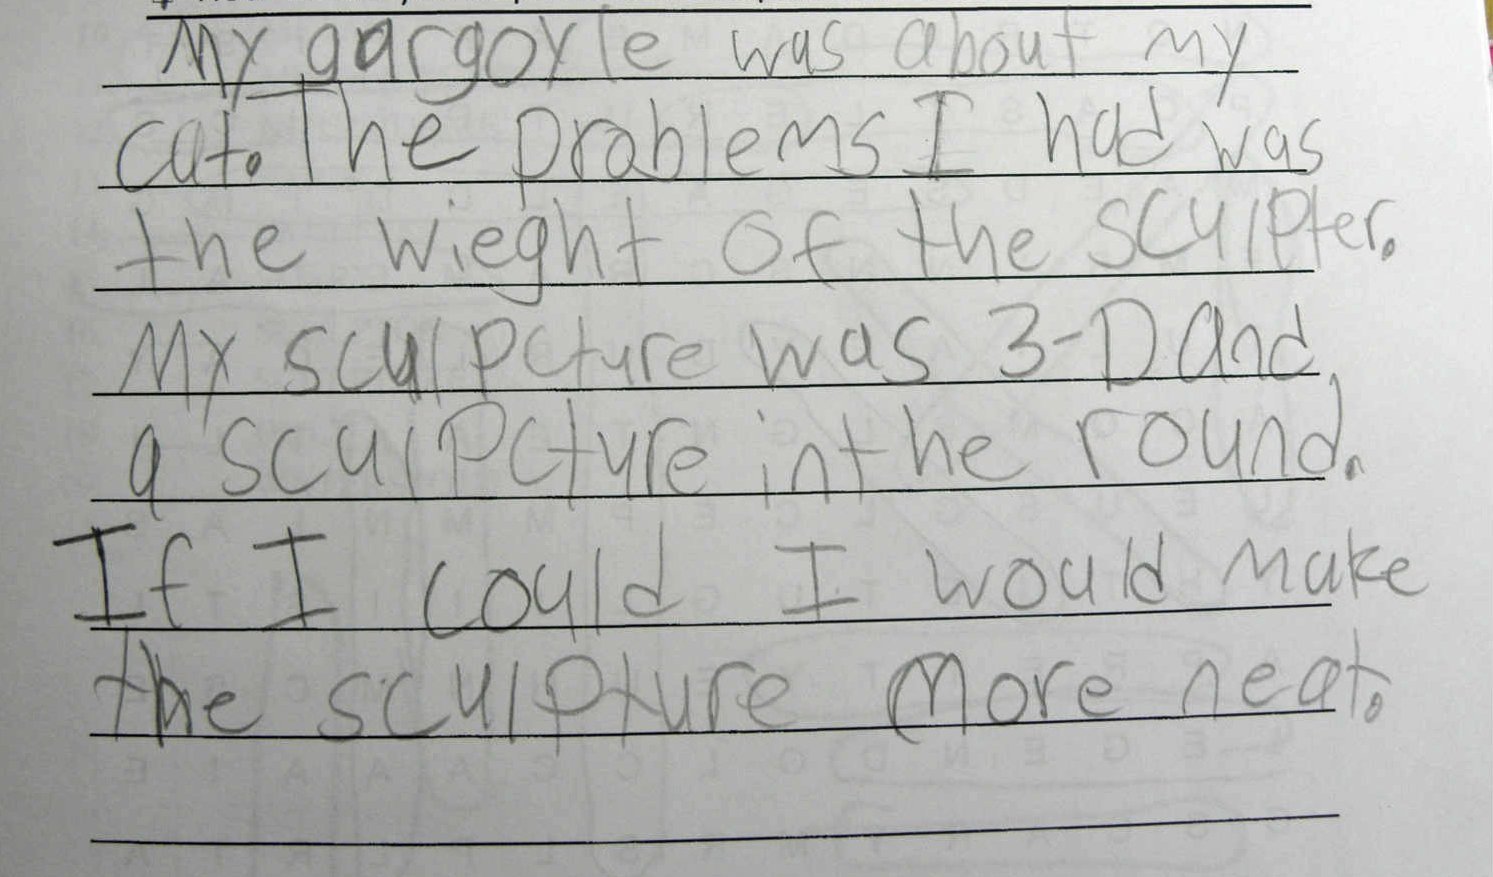 My gargoyle was about my
cat. The problems I had was
the wieght of the sculpter.
My sculpcture was 3-D and
a sculpcture in the round.
If I could I would make
the sculpture more neat.